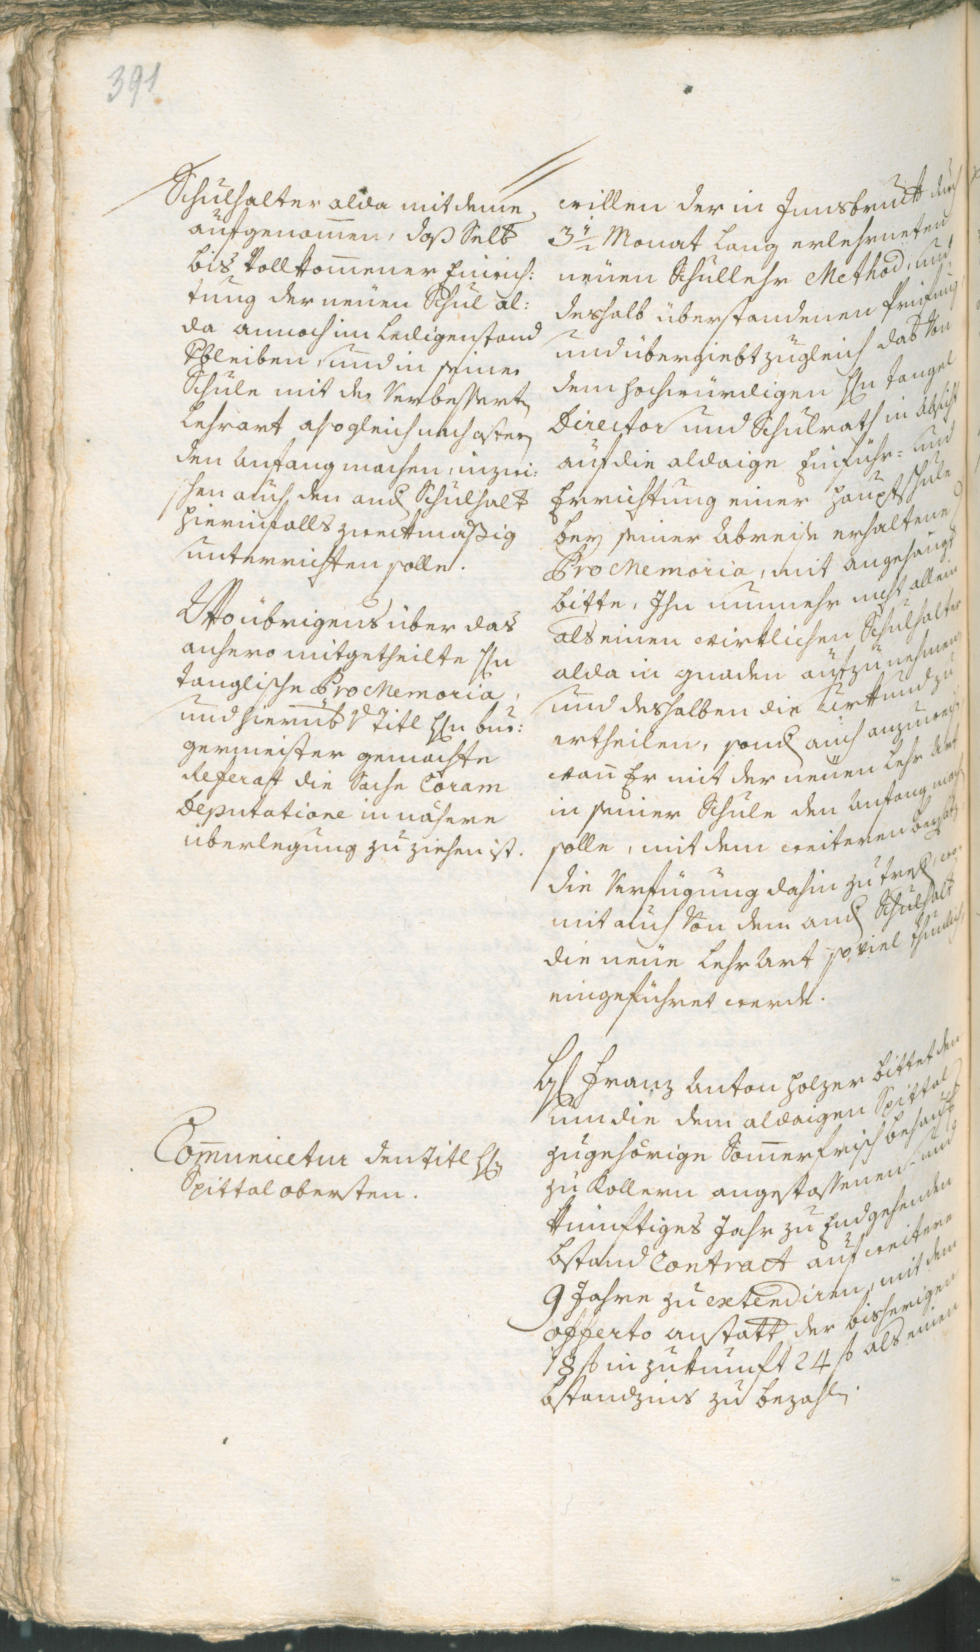 391
Schulhalter alda mit deme
aufgenom̄en, daß Selb
bis Vollkom̄ener Einrich:
tung der neuen Schul al:
da annoch im Ledigenstand
Verbleiben, und in seiner
Schule mit der Verbessert
Lehrart also gleich nach ostern
den Anfang machen, inzwi:
schen auch den and Schulhalt
hierinfalls zweckmäßig
unterrichten solle.
Wo übrigens über das
anhero mitgetheilte Hn
Tanglische Pro Memoria,
und hierüb V Titl Hn bur:
germeister gemachte
Referat die Sache Coram
Deputatione in nähere
überlegung zu ziehen ist.
Com̄unicetur den Titl Hn
Spittal obersten.
willen der in Innsbruck durch
3 1/2 Monat lang erlehrneten
neuen Schullehr Method, und
deshalb überstandenen Prüfung
und übergiebt zugleich das Von
dem hochwürdigen Hn Tangel
Director und Schulrath in Absicht
auf die aldaige Einführ= und
Errichtung einer Hauptschule
bey seiner Abreise erhaltene
Pro Memoria, mit angehängt
bitte, Ihn nunmehr nicht allein
als einen wirklichen Schulhalter
alda in gnaden aufzunehmen
und deshalben die Urkund zu
ertheilen, sond auch anzuweis
wan Er mit der neuen Lehr Art
in seiner Schule den Anfang mach
solle, mit dem weiteren beysatz
die Verfügung dahin zu tref, wo
mit auch Von dem and Schulhalt
die neue Lehr Art so viel thunlich
eingeführet werde.
H Franz Anton Holzer bittet den
um die dem aldaigen Spittal
zugehörige Som̄erfrisch behaus
zu Kollern angestossenen= und
künftiges Jahr zu Endgehenden
bstand Contract auf weitere
9 Jahre zu extendiren, mit dem
offerto anstatt der bisherigen
18 f in zukunft 24 f als einen
bstandzins zu bezahln.